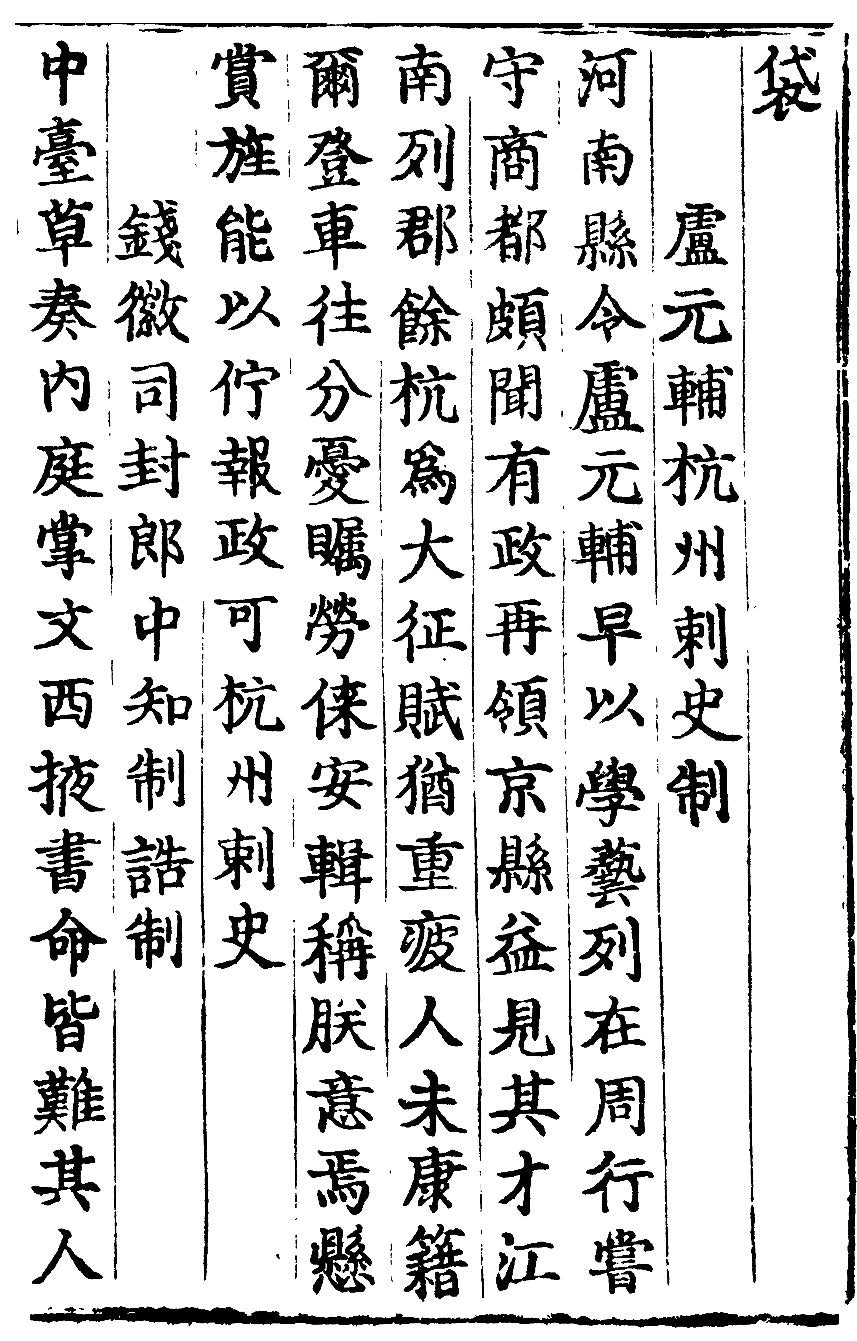 袋
盧元輔杭州刺史制
河南縣令盧元輔早以學藝列在周行嘗
守商都頗聞有政再領京縣益見其才江
南列郡餘杭爲大征賦猶重疲人未康籍
爾登車往分憂矚勞倈安輯稱朕意焉懸
賞旌能以佇報政可杭州刺史
錢徽司封郎中知制誥制
中臺草奏内庭掌文西掖書命皆難其人